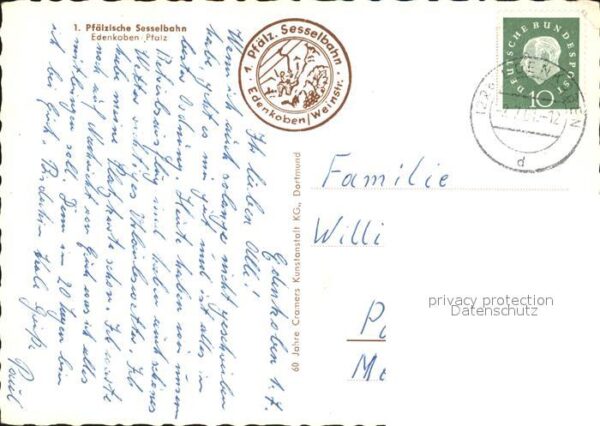 1. Pfälzische Sesselbahn
Edenkoben Pfalz
1. Pfälz. Sesselbahn
Edenkoben/Weinstr.
DEUTSCHE BUNDESPOST
10
d
Edenkoben 1. 7.
Ihr lieben Alle!
Wenn ich auch solange nicht geschrieben
habe, geht es mir gut und ist alles in
bester Ordnung. Heute haben wir unseren
Betriebsausflug und haben ein schönes
Wetter
habe meine schon. Ich warte
noch auf Nachricht von Euch was ich alles
mitbringen soll. Denn in 20 Tagen bin
ich bei Euch. Bis dahin viele Grüße
Paul
60 Jahre Cramers Kunstanstalt KG., Dortmund
Familie
Willi
privacy protection
Datenschutz